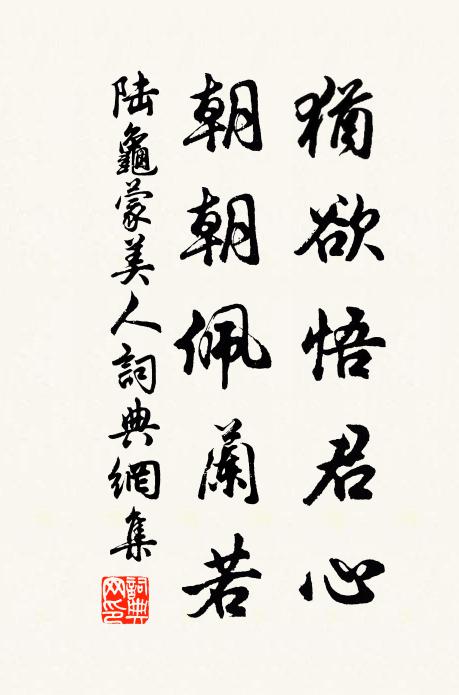 猶欲悟君心
朝朝佩蘭若
陆龜蒙美人詞典網集
詞典网印